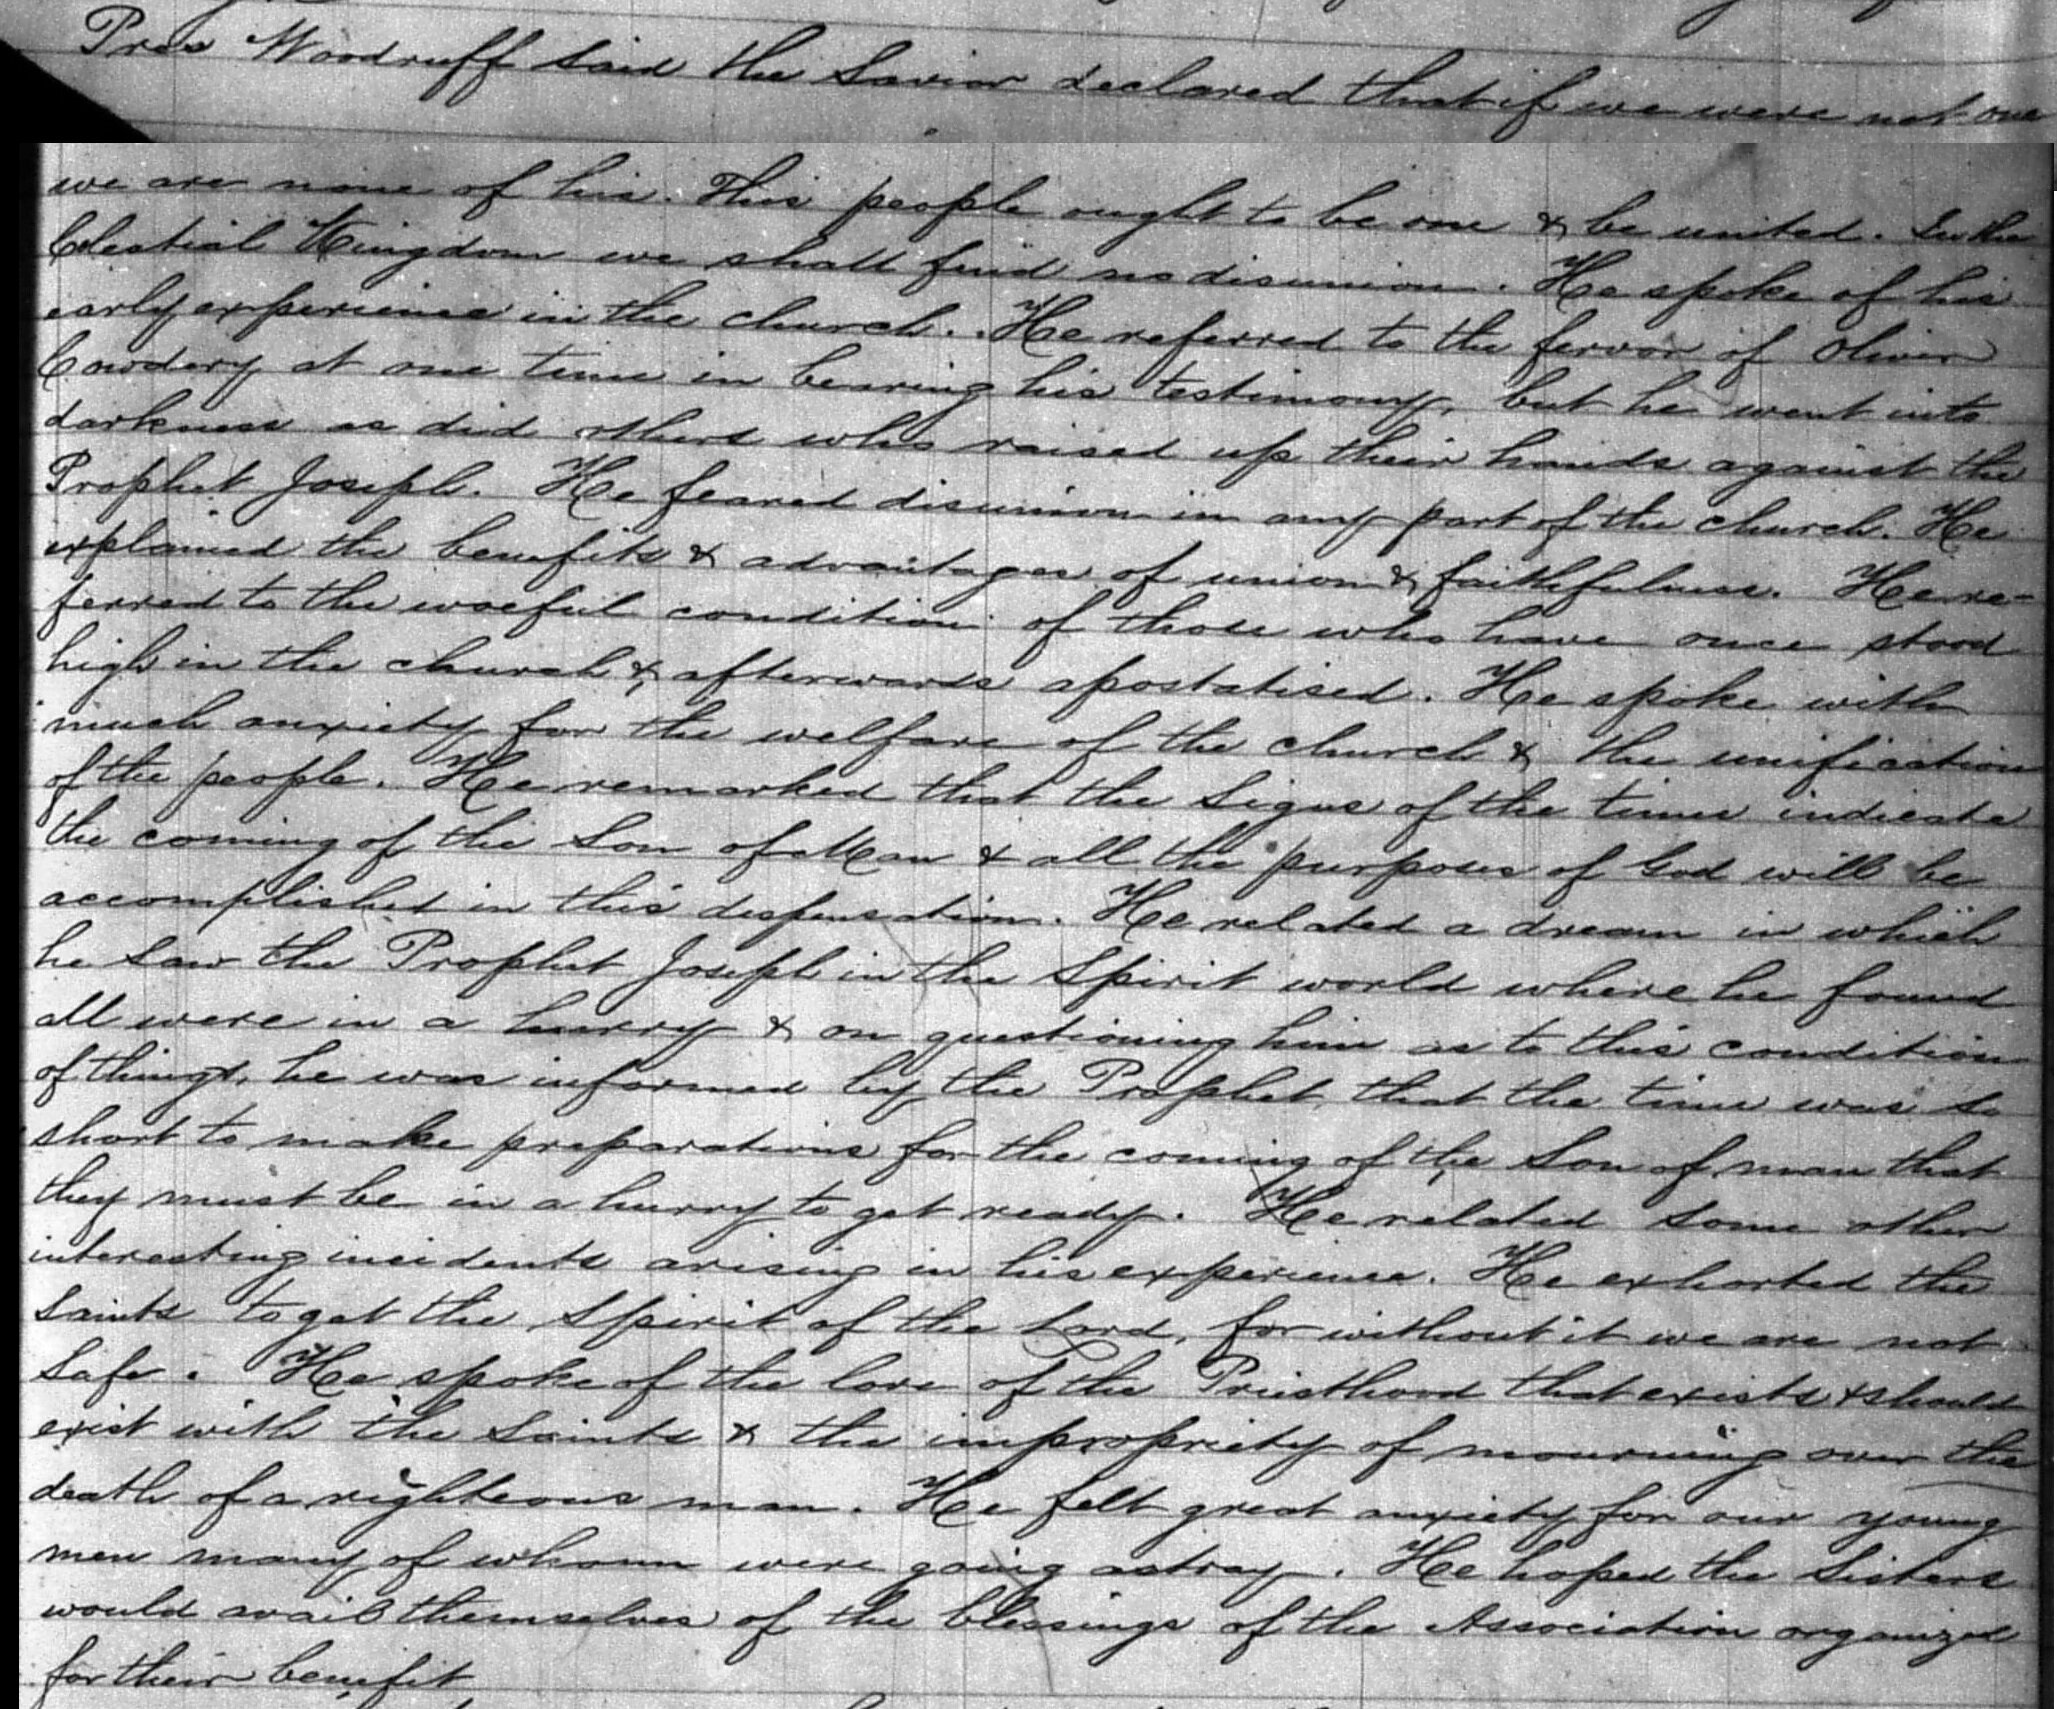 Pres Woodruff said the Savior declared that if we were not one
we are none of his. This people ought to be one & be united. In the
Celestial Kingdom we shall find no disunion. He spoke of his
early experience in the church. He referred to the fervor of Oliver
Cowdery at one time in bearing his testimony, but he went into
darkness as did others who raised up their hands against the
Prophet Joseph. He feared disunion in any part of the church. He
explained the benefits & advantages of union & faithfulness. He re-
ferred to the woeful condition of those who have once stood
high in the church & afterwards apostatised. He spoke with
much anxiety for the welfare of the church & the unification
of the people. He remarked that the signs of the times indicate
the coming of the Son of Man & all the purposes of God will be
accomplished in this dispensation. He related a dream in which
he saw the Prophet Joseph in the Spirit world where he found
all were in a hurry & on questioning him as to this condition
of things, he was informed by the Prophet that the time was so
short to make preparations for the coming of the Son of man that
they must be in a hurry to get ready. He related some other
interesting incidents arising in his experience. He exhorted the
saints to get the Spirit of the Lord, for without it we are not
safe. He spoke of the love of the Priesthood that exists & should
exist with the Saints & the impropriety of mourning over the
death of a righteous man. He felt great anxiety for our young
men many of whom were going astray. He hoped the Sisters
would avail themselves of the blessings of the Association organized
for their benefit